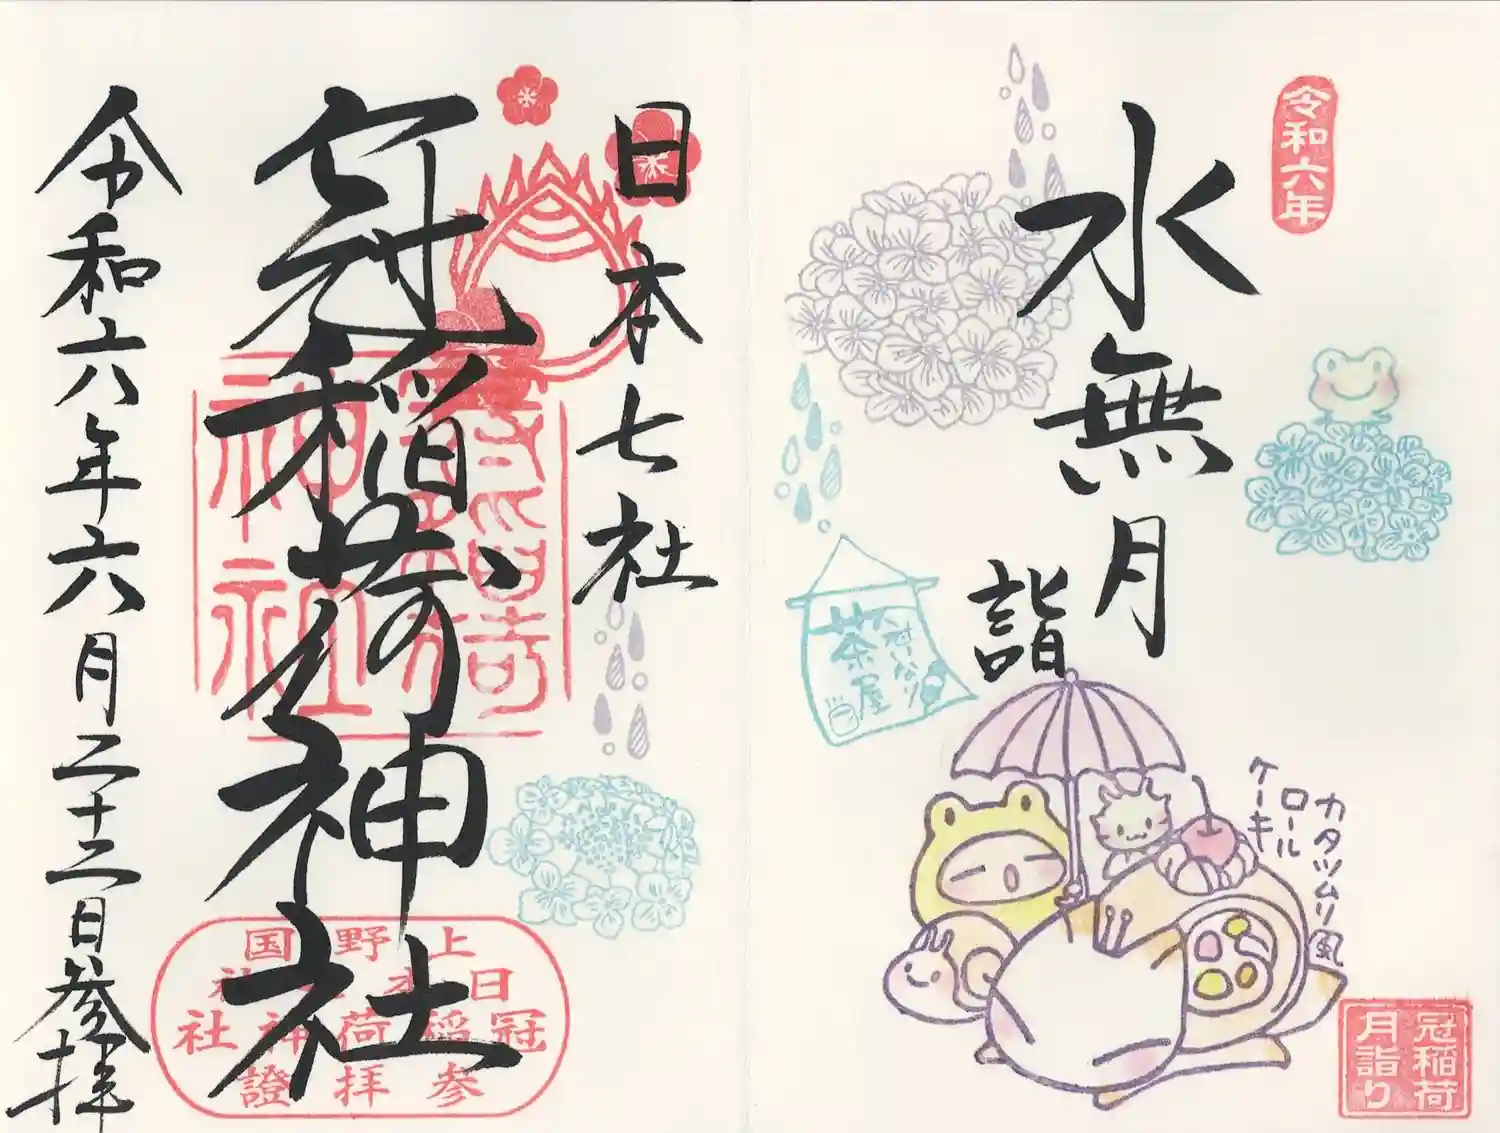 令和六年
水無月
詣
茶屋
カタツムリ風
ロール
ケーキ
冠稲荷
月詣り
日本七社
冠稲荷神社
令和六年六月二十二日参拝
上野国
冠稲荷神社
参拝證
神社